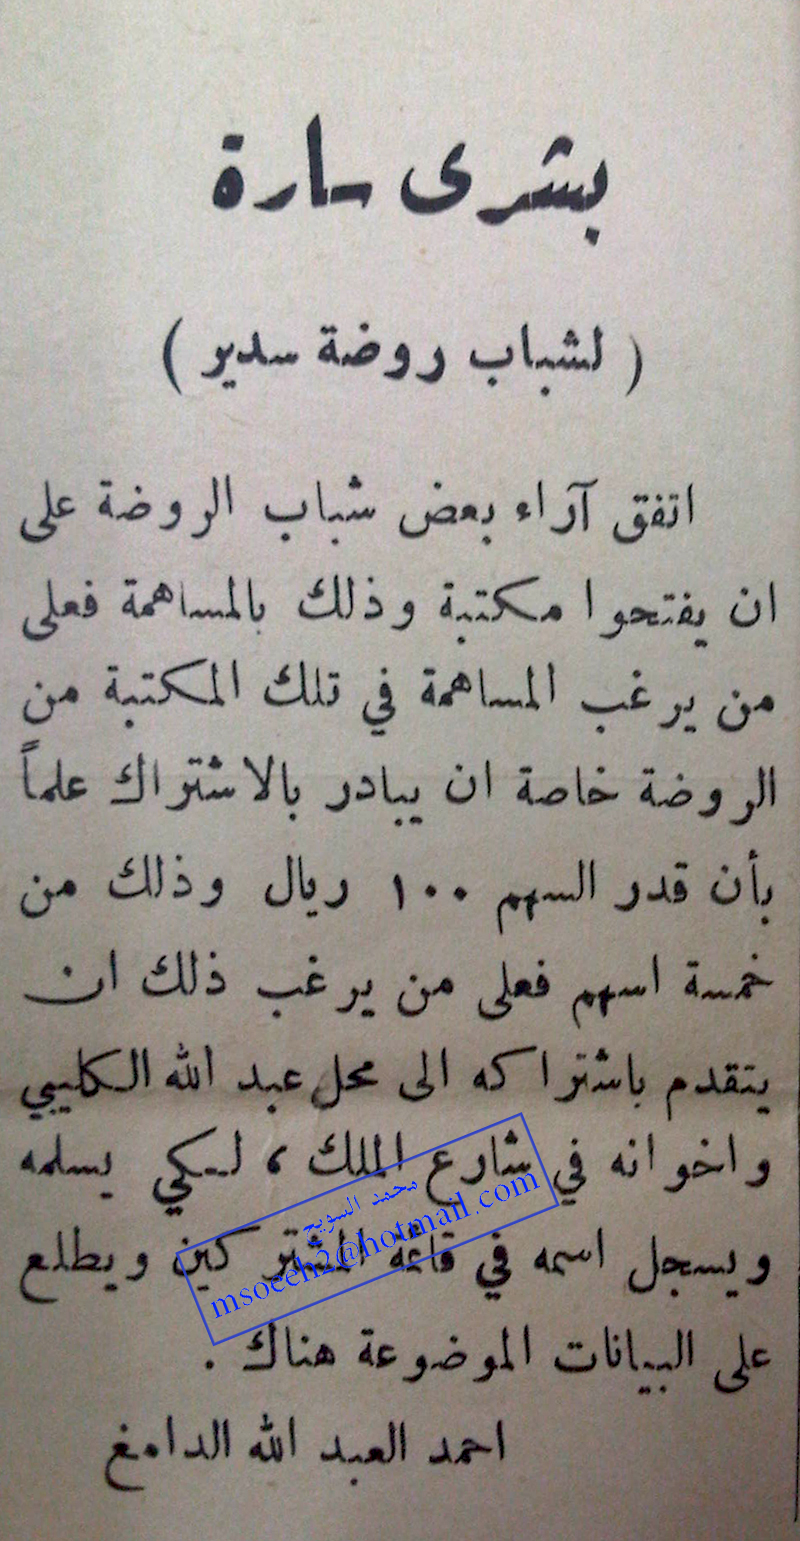 بشرى سارة
( لشباب روضة سدير )
اتفق آراء بعض شباب الروضة على
ان يفتحوا مكتبة وذلك بالمساهمة فعلى
من يرغب المساهمة في تلك المكتبة من
الروضة خاصة ان يبادر بالاشتراك علماً
بأن قدر السهم ١٠٠ ريال وذلك من
خمسة اسهم فعلى من يرغب ذلك ان
يتقدم باشتراكه الى محل عبد الله الكليبي
واخوانه في شارع الملك ، لكي يسلمه
ويسجل اسمه في قائمة المشتركين ويطلع
على البيانات الموضوعة هناك .
احمد العبد الله الدامغ
محمد السويح
msoeeh2@hotmail.com